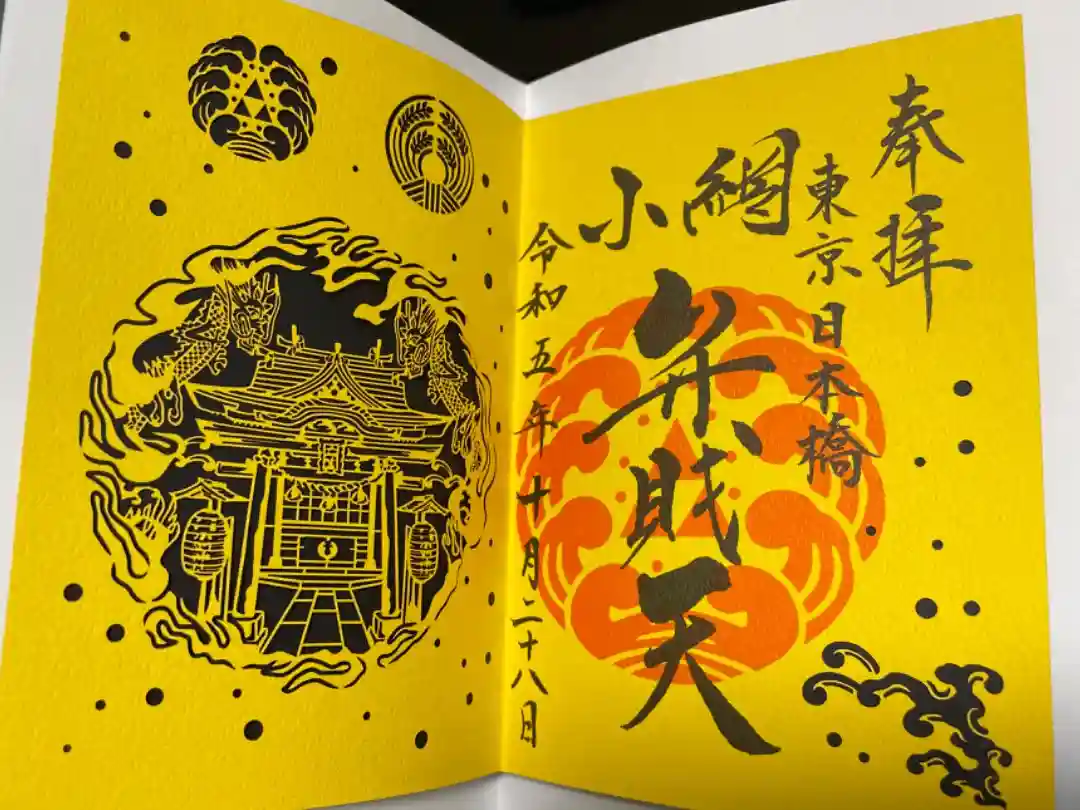 奉拝
東京日本橋
小網
弁財天
令和五年十月二十八日